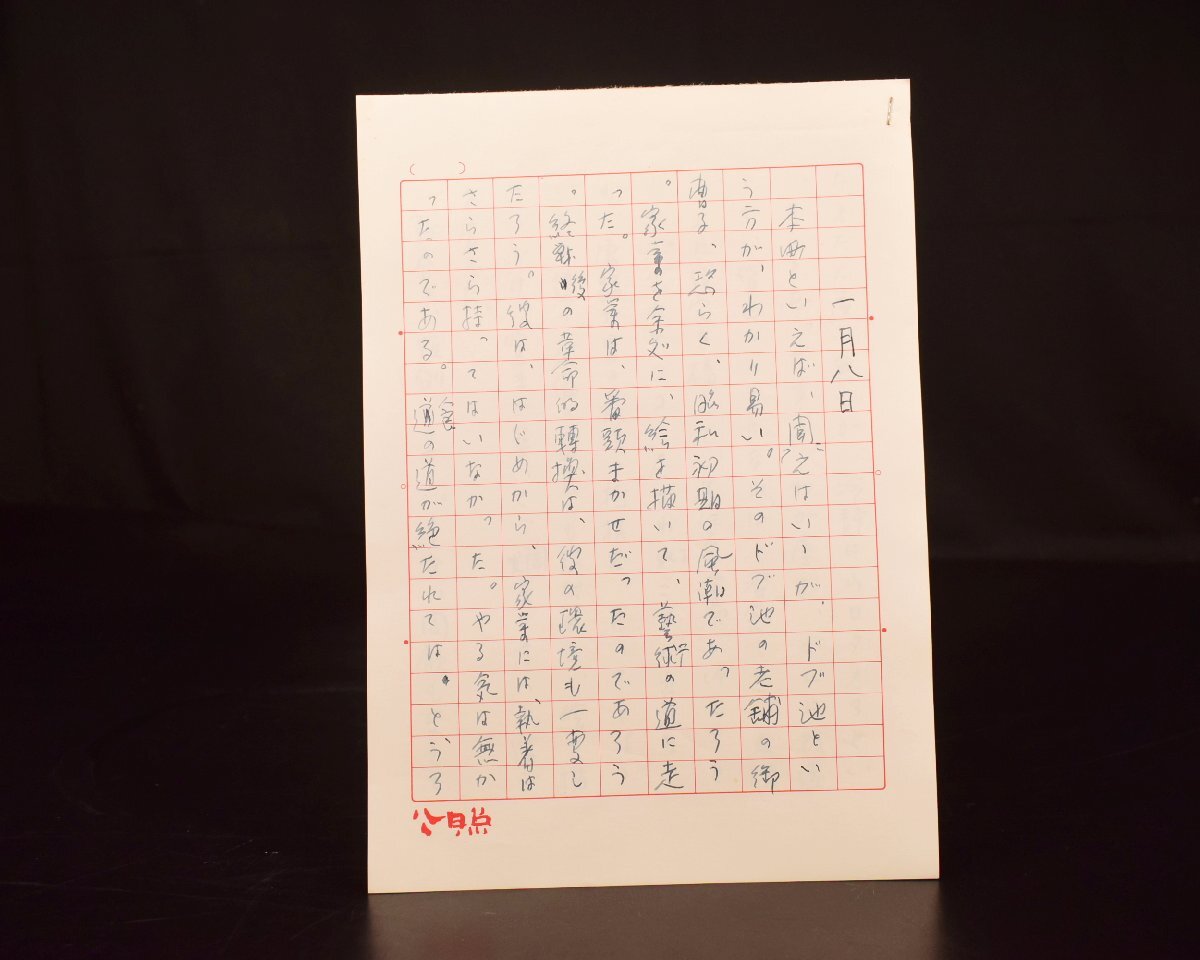 一月八日
本町といえば、聞えはいゝが、ドブ池とい
う方が、わかり易い。そのドブ池の老舗の御
曹子、恐らく、昭和初期の風潮であったろう
。家業を余処に、絵を描いて、藝術の道に走
った。家業は、番頭まかせだったのであろう
。終戦後の革命的轉換は、彼の環境も一変し
たろう。彼は、はじめから、家業には、執着は
さらさら持ってはいなかった。やる気は無か
ったのである。食道の道が絶たれては。とうろ